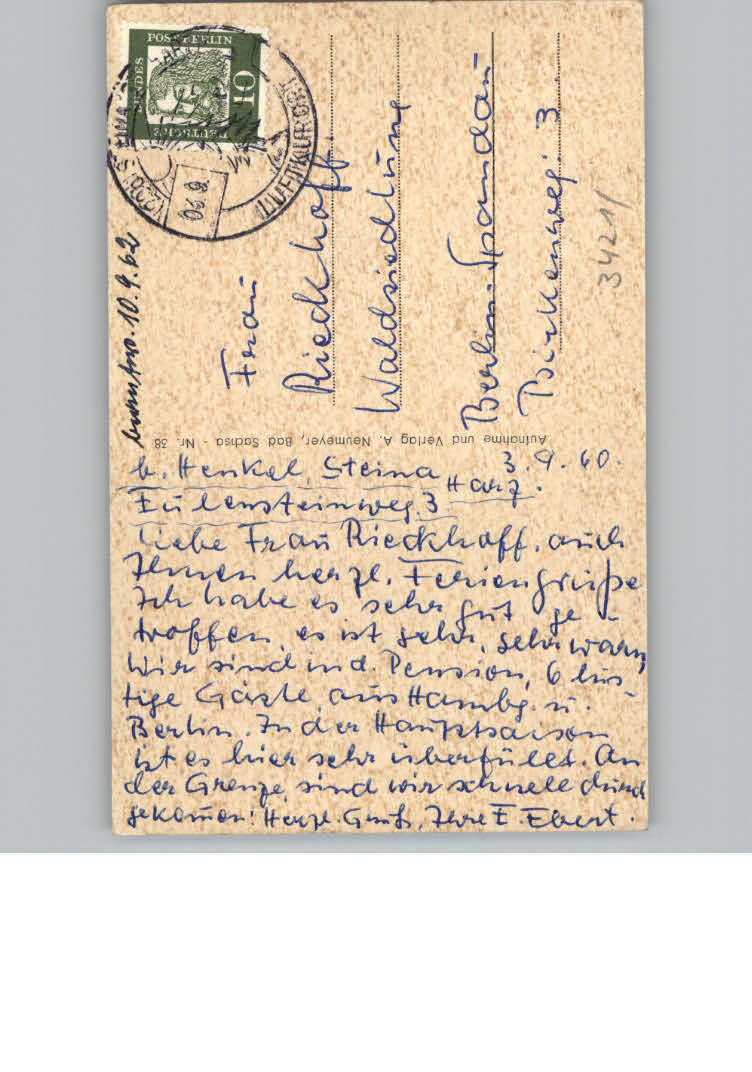 DEUTSCHE BUNDESPOST BERLIN
10
10.9.62
Frau
Rieckhoff.
Waldsiedlung
Berlin-Spandau
Birkenweg. 3
3421/
Aufnahme und Verlag A. Neumeyer, Bad Sachsa - Nr. 38
b. Henkel, Steina 3.9.60.
Harz.
Eulensteinweg. 3
Liebe Frau Rieckhoff. auch
Ihnen herzl. Feriengrüße
Ich habe es sehr gut ge-
troffen, es ist sehr, sehr warm,
Wir sind in d. Pension, 6 lus-
tige Gäste aus Hambg. u.
Berlin. In der Hauptsaison
ist es hier sehr überfüllt. An
der Grenze sind wir schnell durch
gekommen! Herzl. Gruß, Ihre E. Ebert.